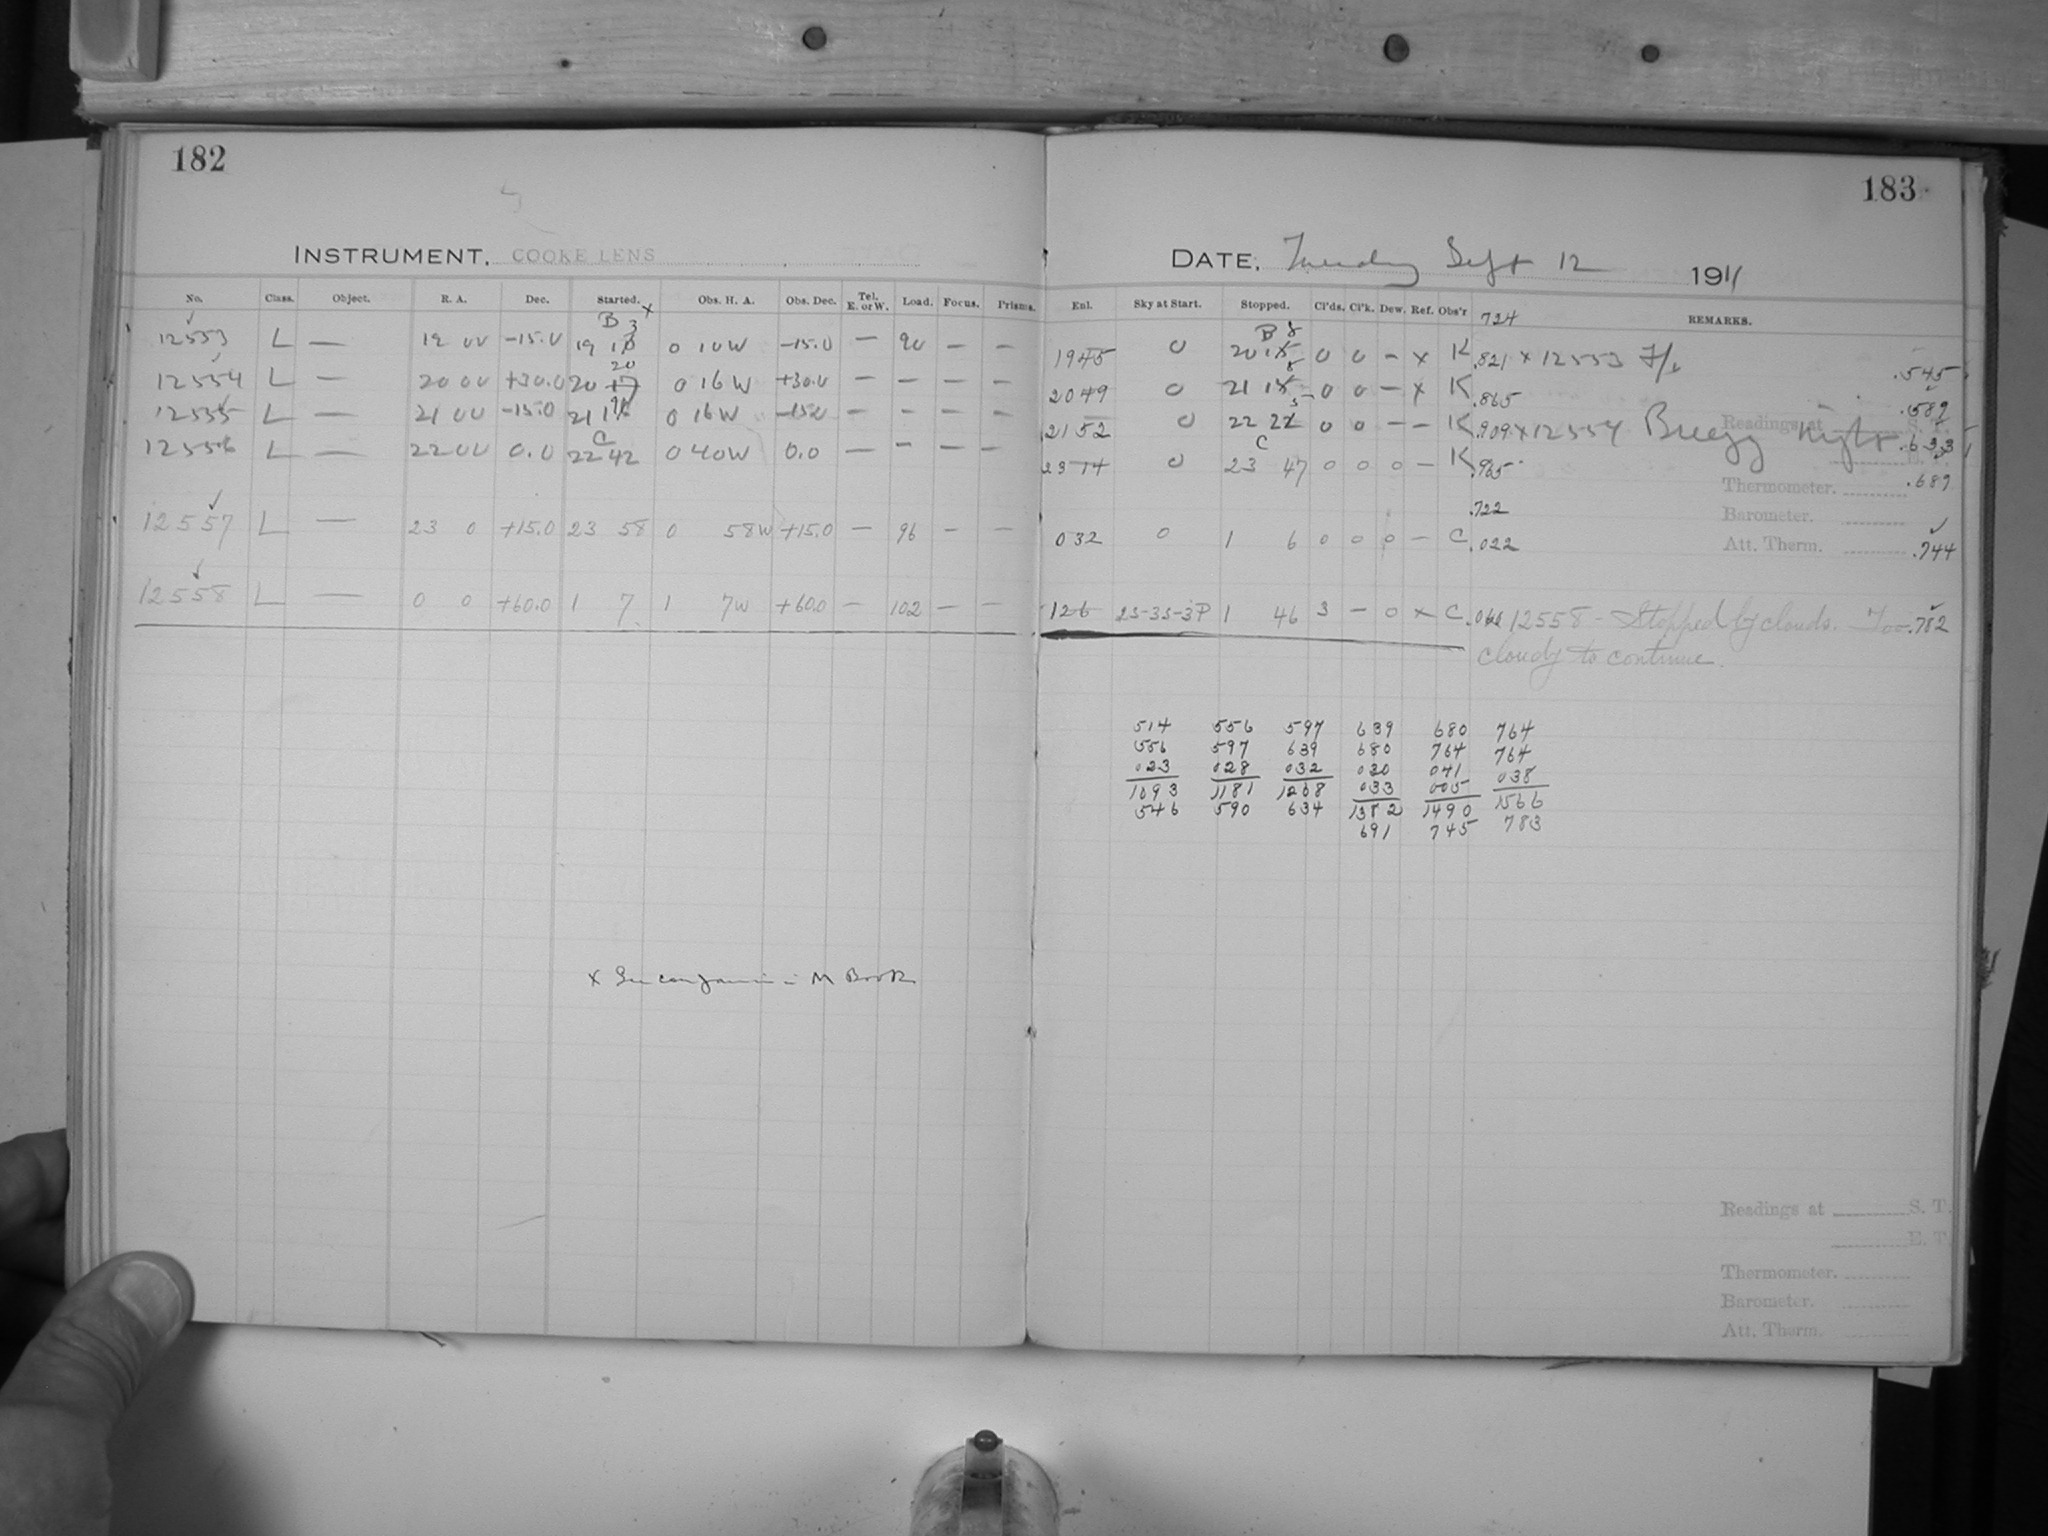 182
183
INSTRUMENT, COOKE LENS
DATE, Tuesday Sept 12 1911
No. Class. Object. R. A. Dec. Started. Obs. H. A. Obs. Dec. Tel. E. or W. Load. Focus. Prisms. Enl. Sky at Start. Stopped. Cl'ds. Cl'k. Dew. Ref. Obs'r REMARKS.
724
12553 L — 19 00 -15.0 19 0 10W -15.0 — 90 — — 1945 0 20 0 0 — x K .821 x 12553 .545
12554 L — 20 00 +30.0 20 20 0 16W +30.0 — — — — 2049 0 21 0 0 — x K .865 .589
12555 L — 21 00 -15.0 21 0 16W -15.0 — — — — 2152 0 22 0 0 — — K .909 x 12554 Breezy night .633
12556 L — 22 00 0.0 22 42 0 40W 0.0 — — — — 23 14 0 23 47 0 0 0 — K .965 .689
Readings at S. T.
Thermometer.
.722
Barometer.
12557 L — 23 0 +15.0 23 58 0 58W +15.0 — 96 — — 032 0 1 6 0 0 0 — C .022 .744
Att. Therm.
12558 L — 0 0 +60.0 1 7 1 7W +60.0 — 102 — — 126 25-35-3P 1 46 3 — 0 x C 12558 - Stopped by clouds. Too .782
cloudy to continue.
514 556 597 639 680 764
556 597 639 680 764 764
023 028 032 030 041 038
1093 1181 1268 033 005 1566
546 590 634 1382 1490 783
691 745
x See M Book
Readings at S. T.
E. T.
Thermometer.
Barometer.
Att. Therm.